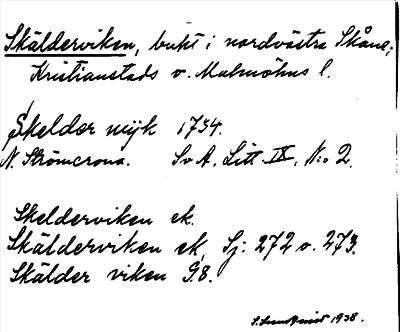 Skälderviken, bukt i nordvästra Skåne;
Kristianstads o. Malmöhus l.
Skelder wijk 1734.
N. Strömcrona. SvA. Litt. IX, N:o 2.
Skelderviken ek.
Skälderviken ek, Sj: 272 o. 273.
Skälder viken G.8.
S. Lundqvist 1938.